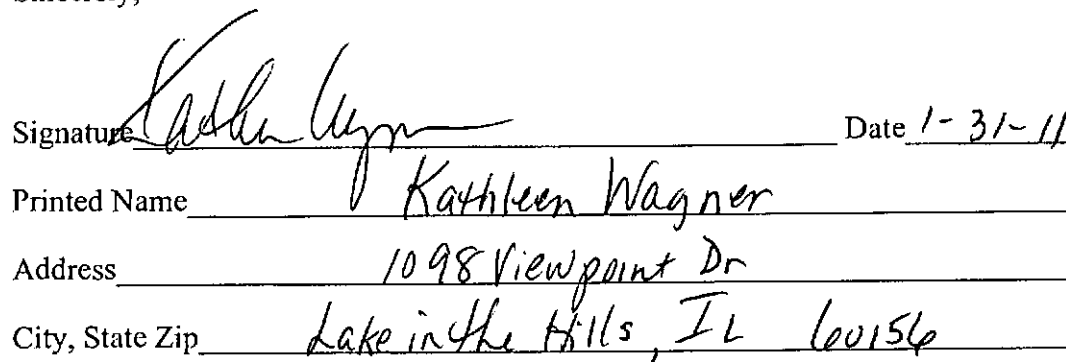 Signature Kathleen Wagner Date 1-31-11
Printed Name Kathleen Wagner
Address 1098 Viewpoint Dr
City, State Zip Lake in the Hills, IL 60156